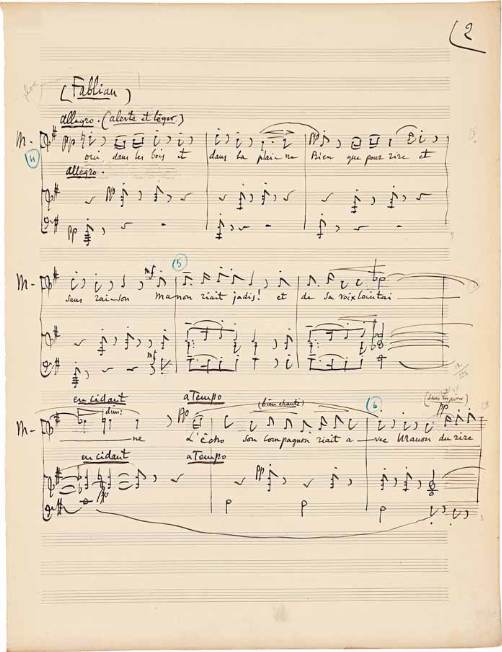 (2
(Fabliau)
allegro. (alerte et léger)
M- pp oui, dans les bois et dans la plai-ne Bien que pour rire et
4
allegro.
pp
pp
5
M- sans rai-son mf Manon riait jadis! et de sa voix lointai-
mf
en cédant a Tempo
dim: pp (bien chanté) 6 pp
M- ne L'écho son compagnon riait a-vec Manon du rire
en cédant a Tempo
pp pp